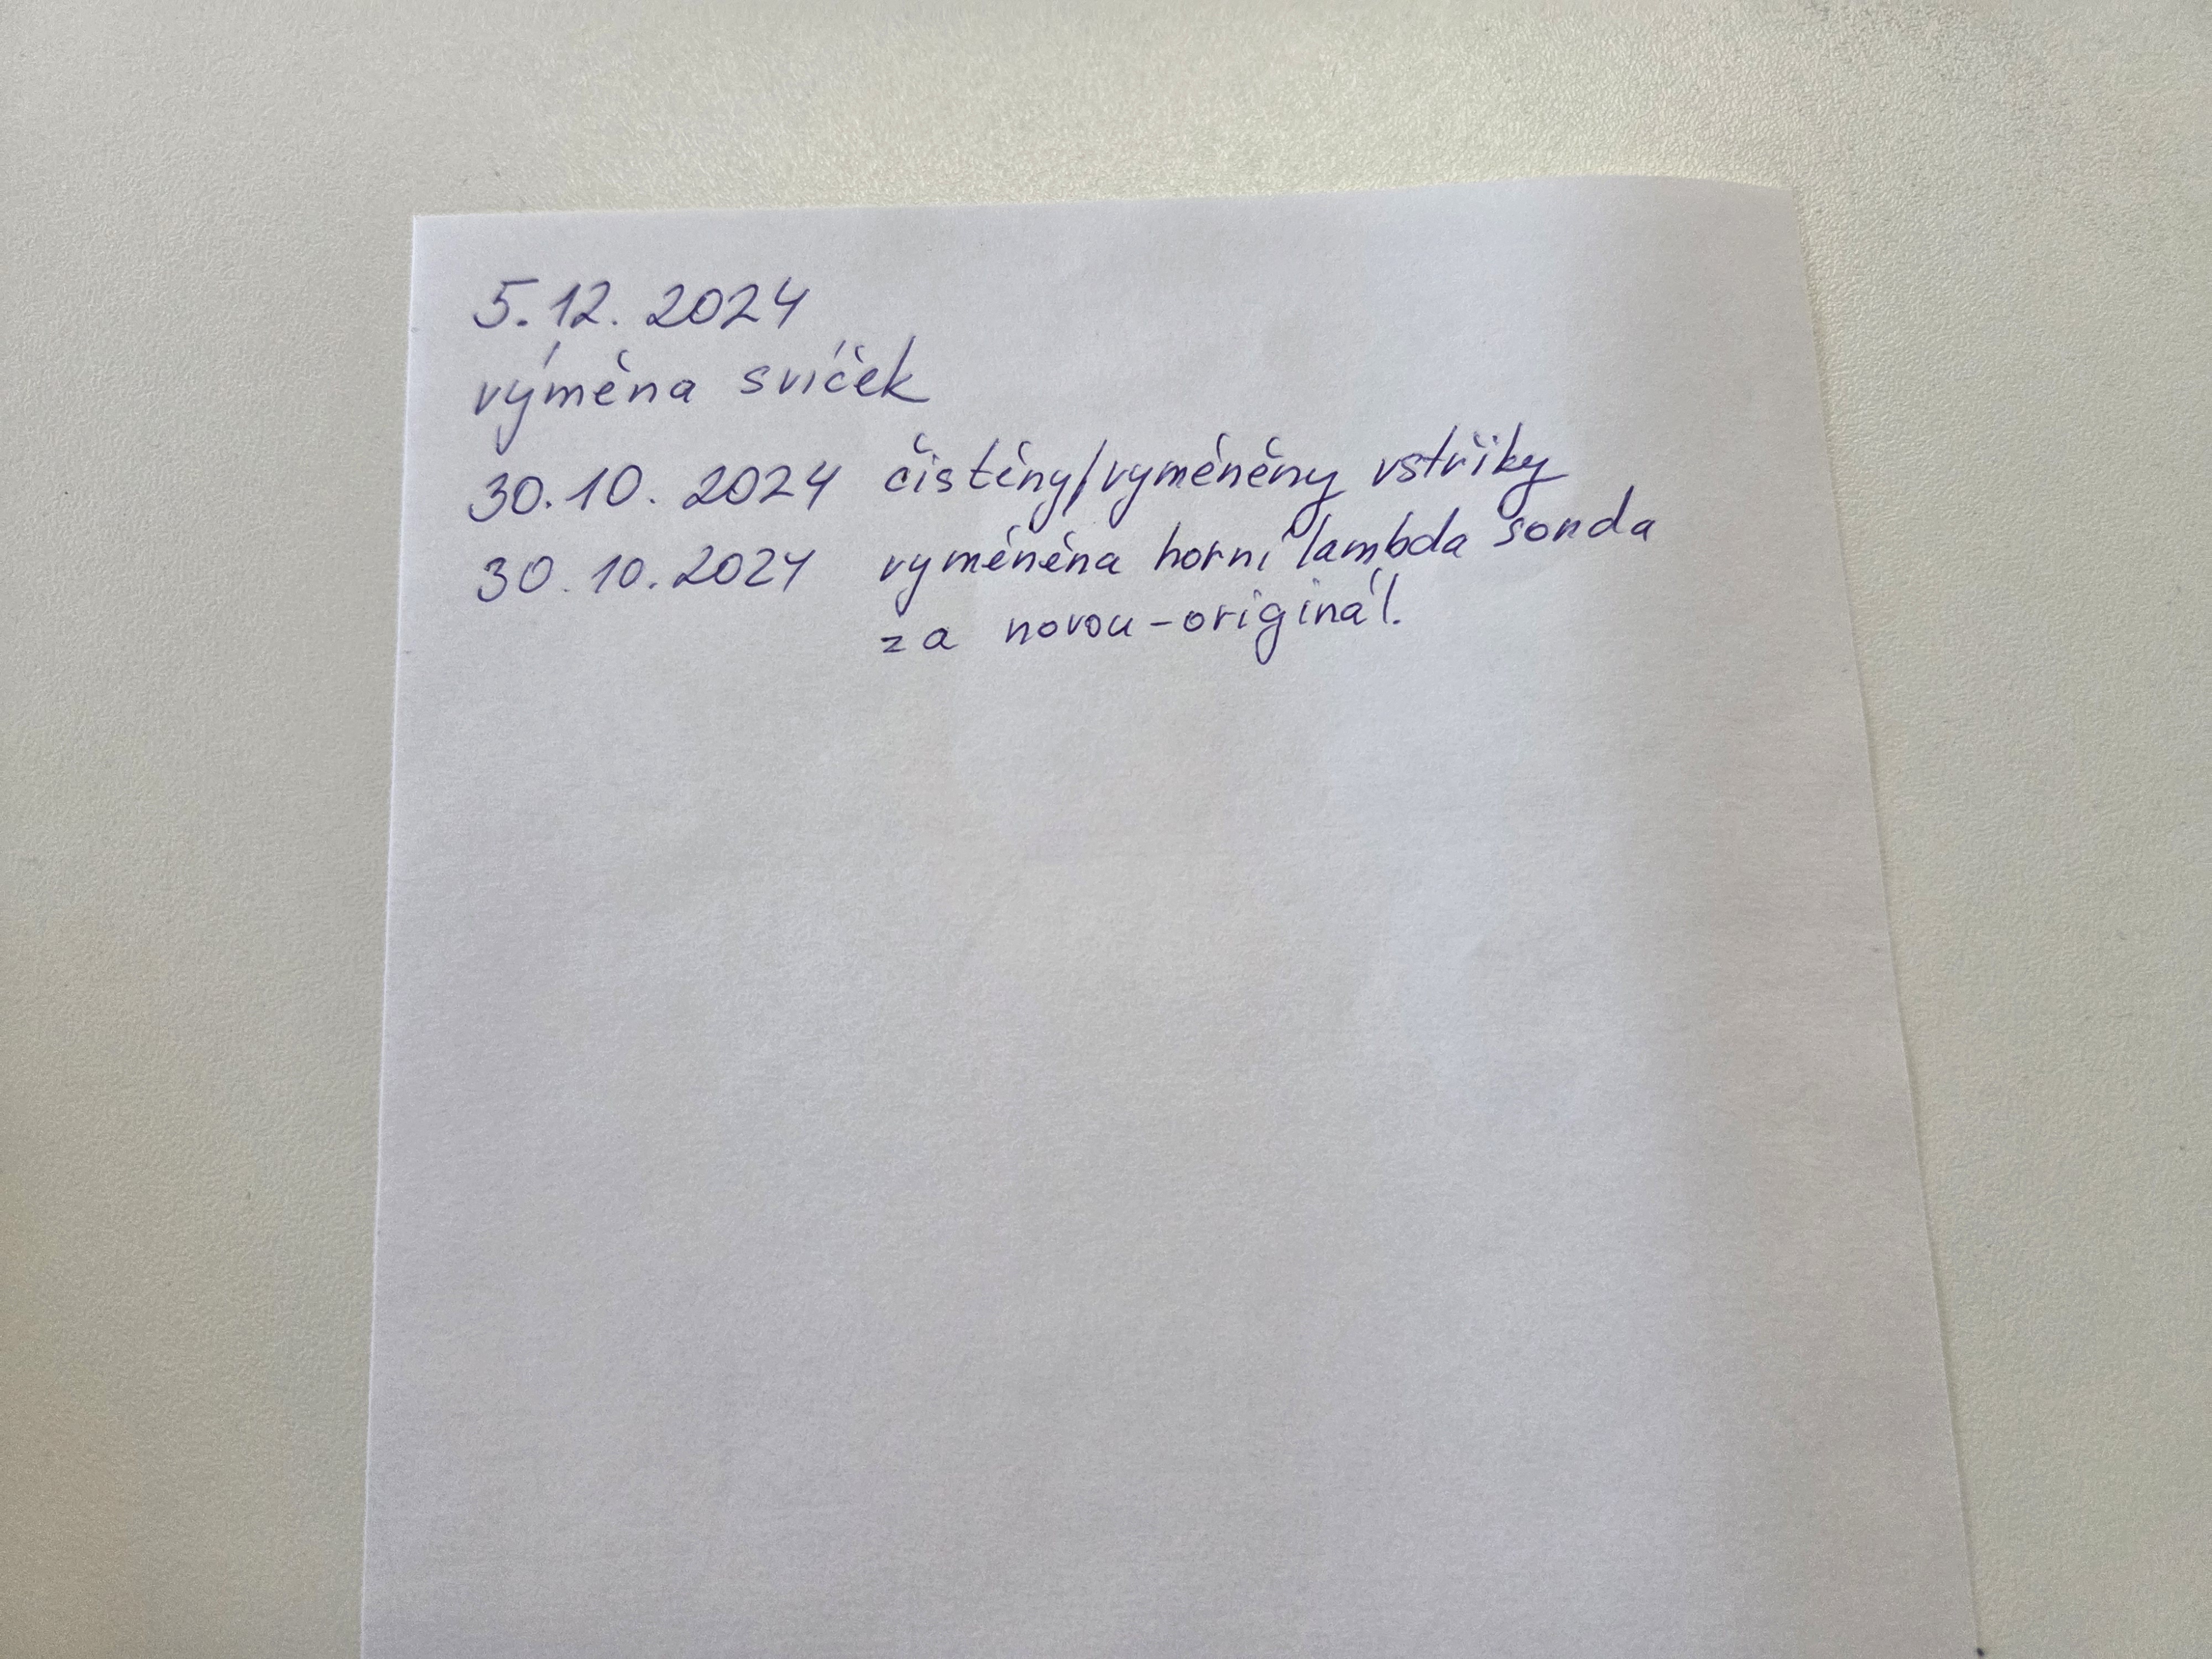 5.12. 2024
výměna svíček
30.10. 2024 čistěny/vyměněny vstřiky
30.10.2024 vyměněna horní lambda sonda
za novou - originál.